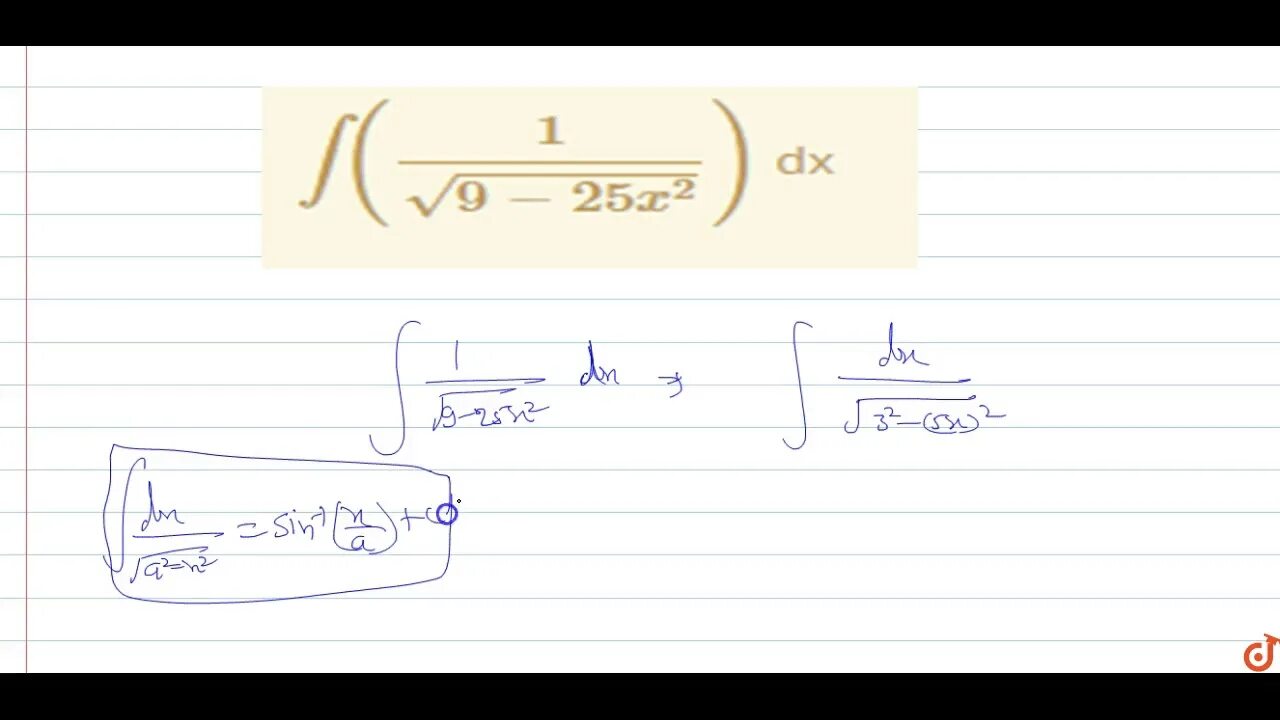 ∫(1/√(9 − 25x²)) dx
∫ 1/√(9−25x²) dx → ∫ dx/√(3²−(5x)²)
∫ dx/√(a²−x²) = sin⁻¹(x/a) + c